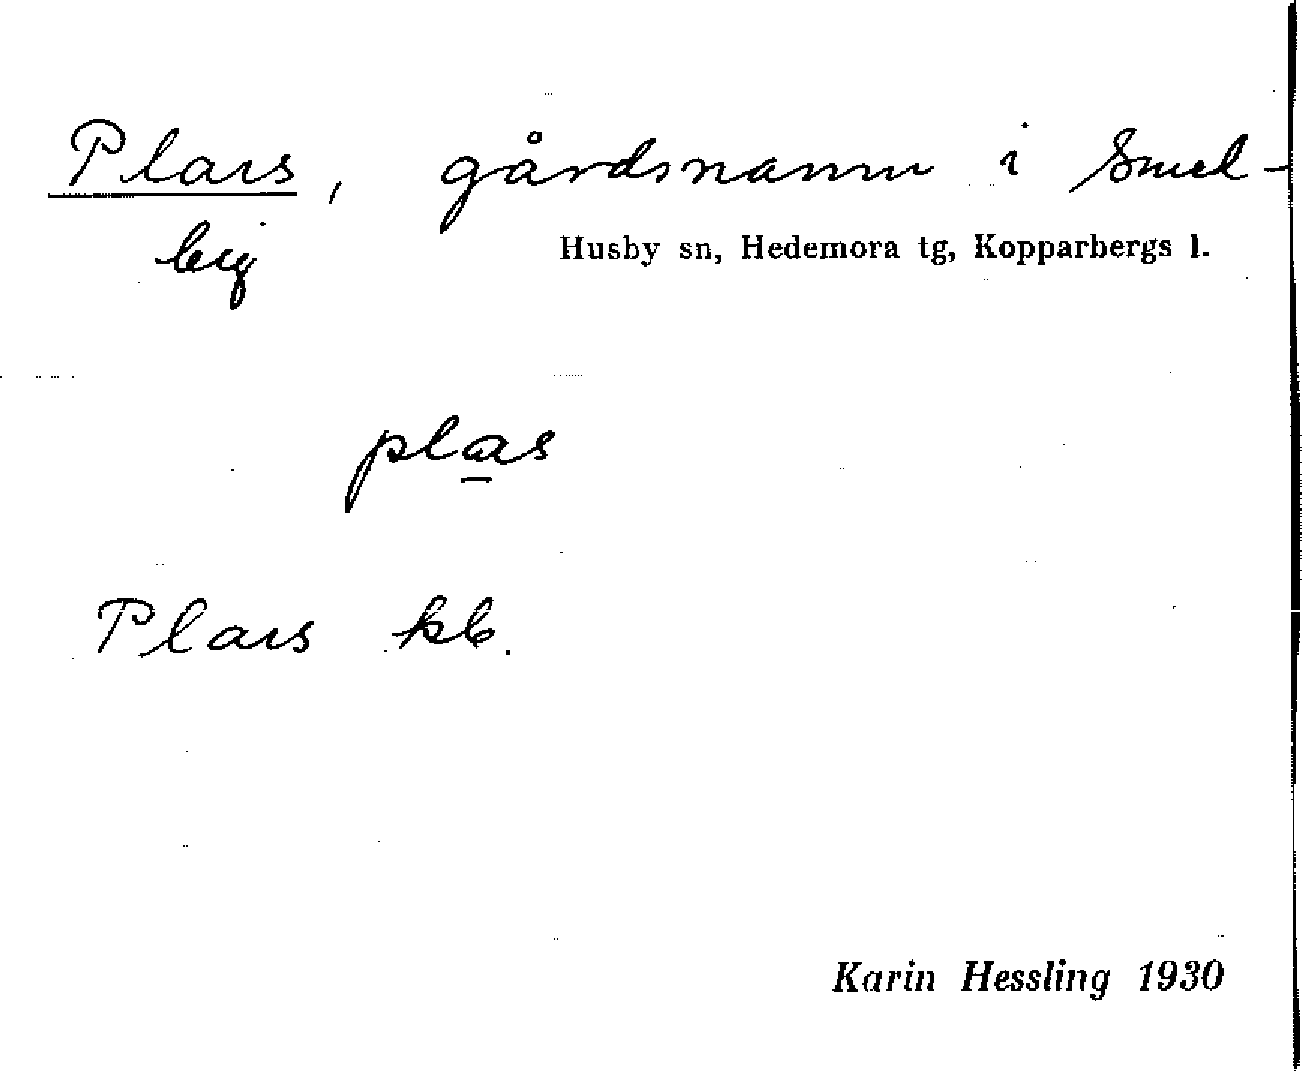 Plars, gårdsnamn i Smed-
by
Husby sn, Hedemora tg, Kopparbergs l.
plas
Plars kb.
Karin Hessling 1930